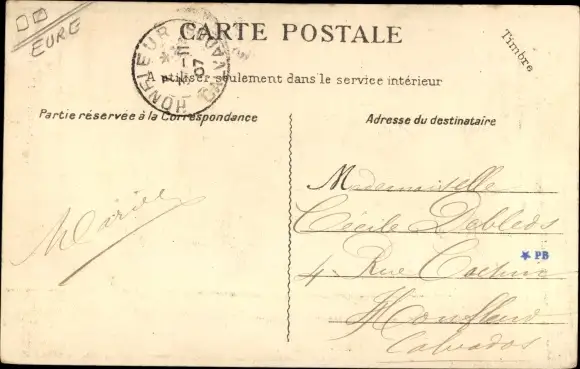 EURE
CARTE POSTALE
Timbre
HONFLEUR CALVADOS
11 07
A utiliser seulement dans le service intérieur
Partie réservée à la Correspondance
Adresse du destinataire
Marie
Mademoiselle
Cécile Debleds
PB
4 Rue
Honfleur
Calvados